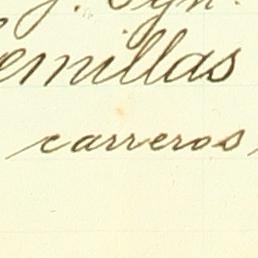 emillas
carreros,